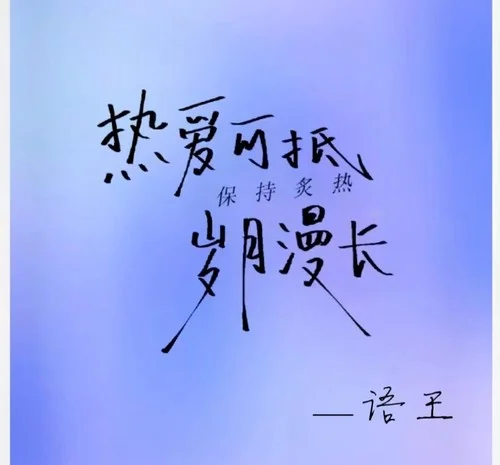 热爱可抵
保持炙热
岁月漫长
—语王